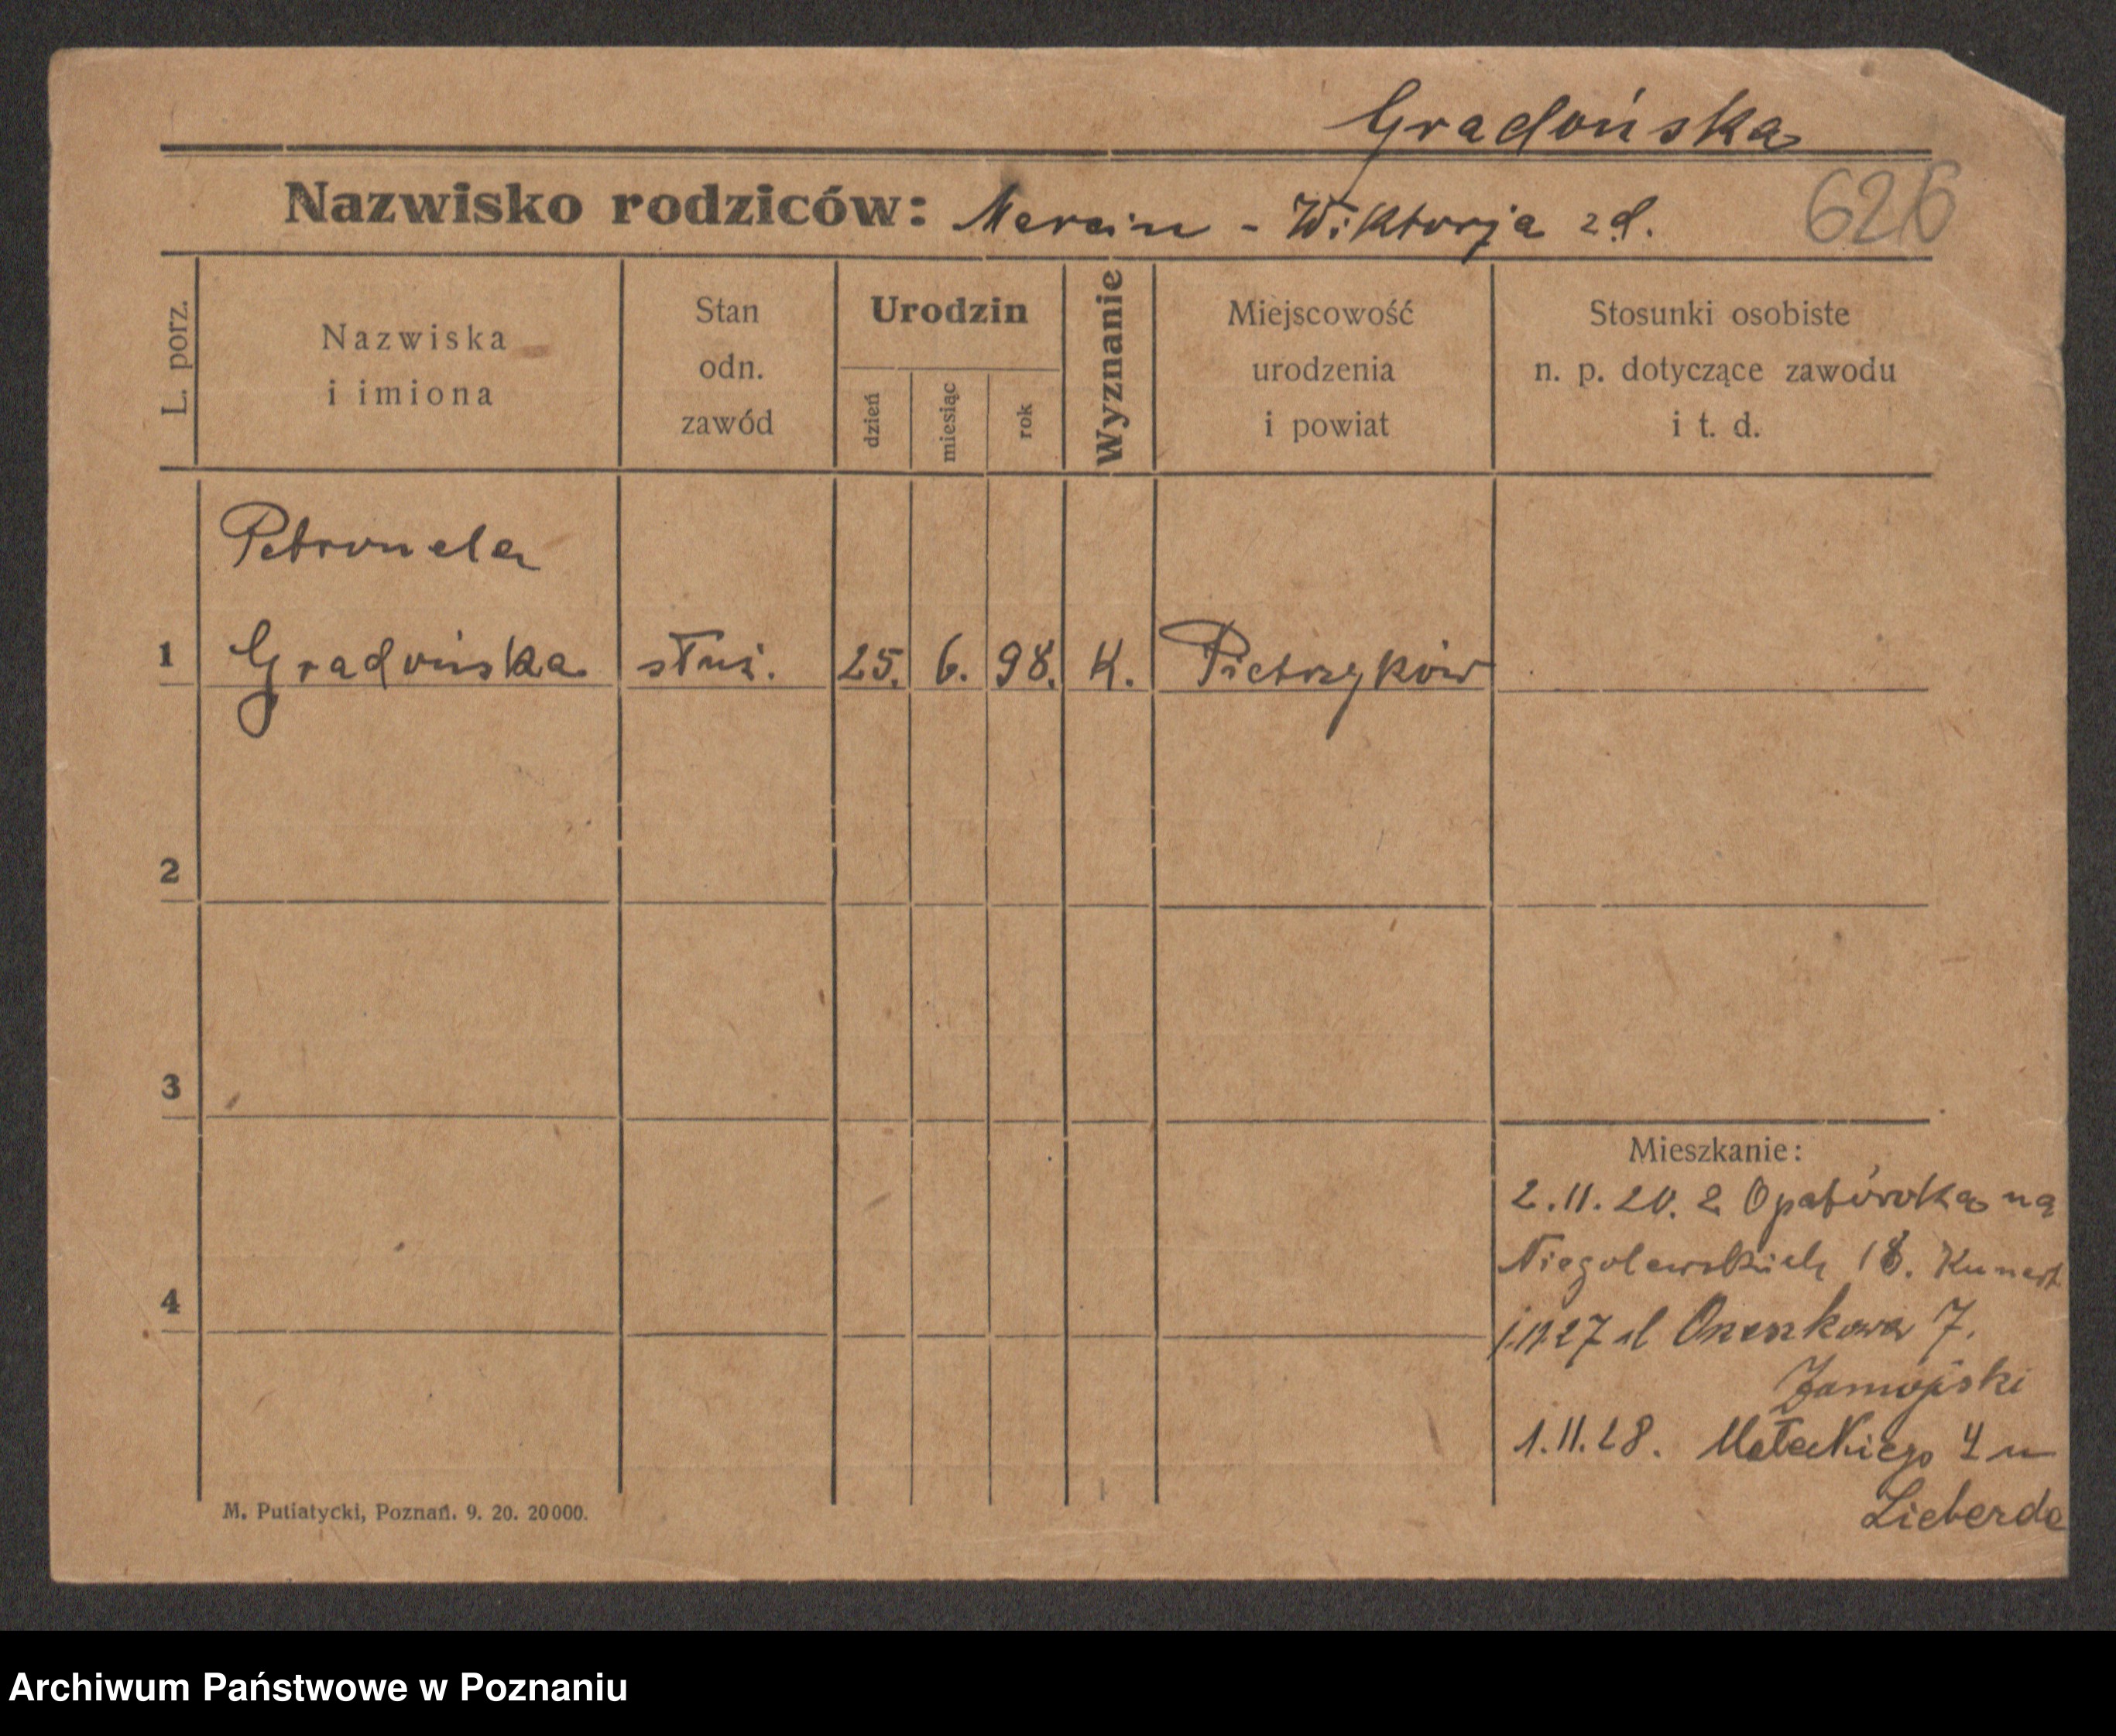 Gradońska
Nazwisko rodziców: Marcin - Wiktorja zd.
626
L. porz.
Nazwiska
i imiona
Stan
odn.
zawód
Urodzin
dzień
miesiąc
rok
Wyznanie
Miejscowość
urodzenia
i powiat
Stosunki osobiste
n. p. dotyczące zawodu
i t. d.
Petronela
1 Gradońska służ. 25. 6. 98. K. Pietrzyków
2
3
4
Mieszkanie:
2.11.20. z Opatówka na
Niegolewskich 18. Kunert
27 Orzeszkowa 7.
Zamojski
1.11.28. Małeckiego 4 u
Lieberda
M. Putiatycki, Poznań. 9. 20. 20000.
Archiwum Państwowe w Poznaniu